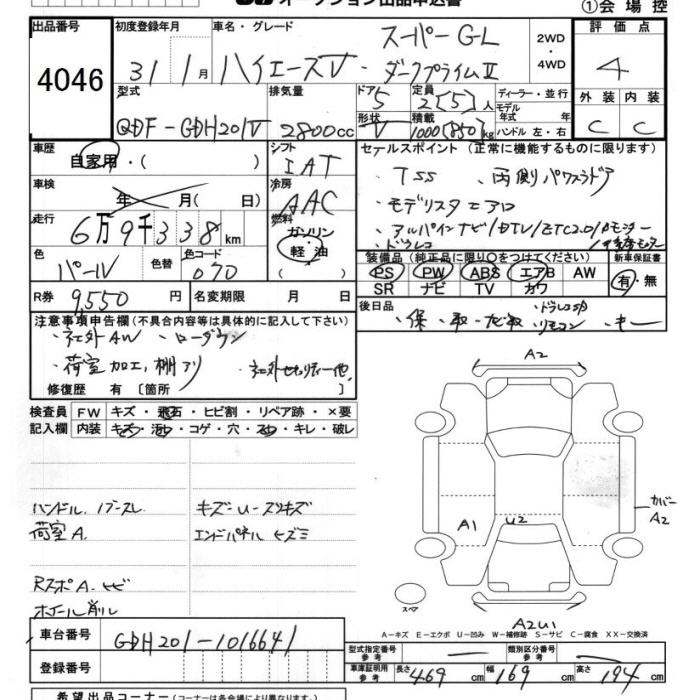 オークション出品申込書 ①会場控
出品番号 初度登録年月 車名・グレード 評価点
4046 31年1月 ハイエースV スーパーGL ダークプライムⅡ 2WD・4WD 4
型式 排気量 ドア 定員 ディーラー・並行 外装 内装
QDF-GDH201V 2800cc 5 2[5]人 モデル年式 年 C C
形状 V 積載 1000[850]kg ハンドル 左・右
車歴 自家用・( ) シフト IAT
セールスポイント (正常に機能するものに限ります)
・TSS ・両側パワスラドア
・モデリスタエアロ
・アルパインナビ/DTV/ETC2.0/Bモニター
・ドラレコ
車検 年 月( 日) 冷房 AAC
走行 6万9千338km 燃料 ガソリン 軽油 ( )
色 パール 色替 色コード 070
装備品 (純正品に限り○をつけてください) 新車保証書
PS PW ABS エアB AW 有・無
SR ナビ TV カワ
R券 9,550円 名変期限 月 日
後日品 ・保・取・ナビ取 ・ドラレコSD ・リモコン ・キー
注意事項申告欄 (不具合内容等は具体的に記入して下さい)
・社外AW ・ローダウン
・荷室加工、棚アリ ・社外セキュリティー他
修復歴 有 [箇所 ]
検査員 FW キズ・飛石・ヒビ割・リペア跡・×要
記入欄 内装 キズ・汚・コゲ・穴・スレ・キレ・破レ
A2
ハンドル、ノブスレ キズ・U・スリキズ
荷室A エンドパネルキズミ
A1 U2 カバーA2
RスポA、ヒビ
ホイール削ル
スペア
A2U1
A−キズ E−エクボ U−凹み W−補修跡 S−サビ C−腐食 XX−交換済
車台番号 GDH201-1016641
型式指定番号 参考 類別区分番号 参考
登録番号
車庫証明用 参考 長さ 469cm 幅 169cm 高さ 194cm
希望出品コーナー (コーナーは各会場により異なります)